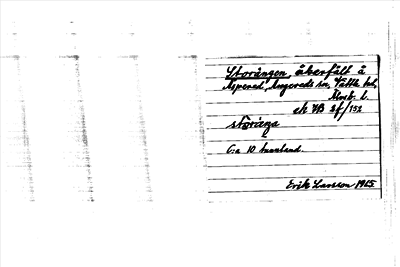 Storängen, åkerfält å
Aspered, Angereds sn, Vättle hd,
Älvsb. l.
ek VB 2f/132
störänga
C:a 10 tunnland.
Erik Larsson 1965